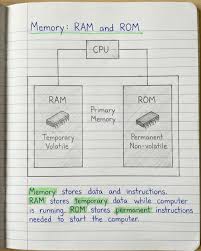 Memory: RAM and ROM
CPU
RAM
Primary
Memory
ROM
Temporary
Volatile
Permanent
Non-volatile
Memory stores data and instructions.
RAM stores temporary data while computer
is running. ROM stores permanent instructions
needed to start the computer.